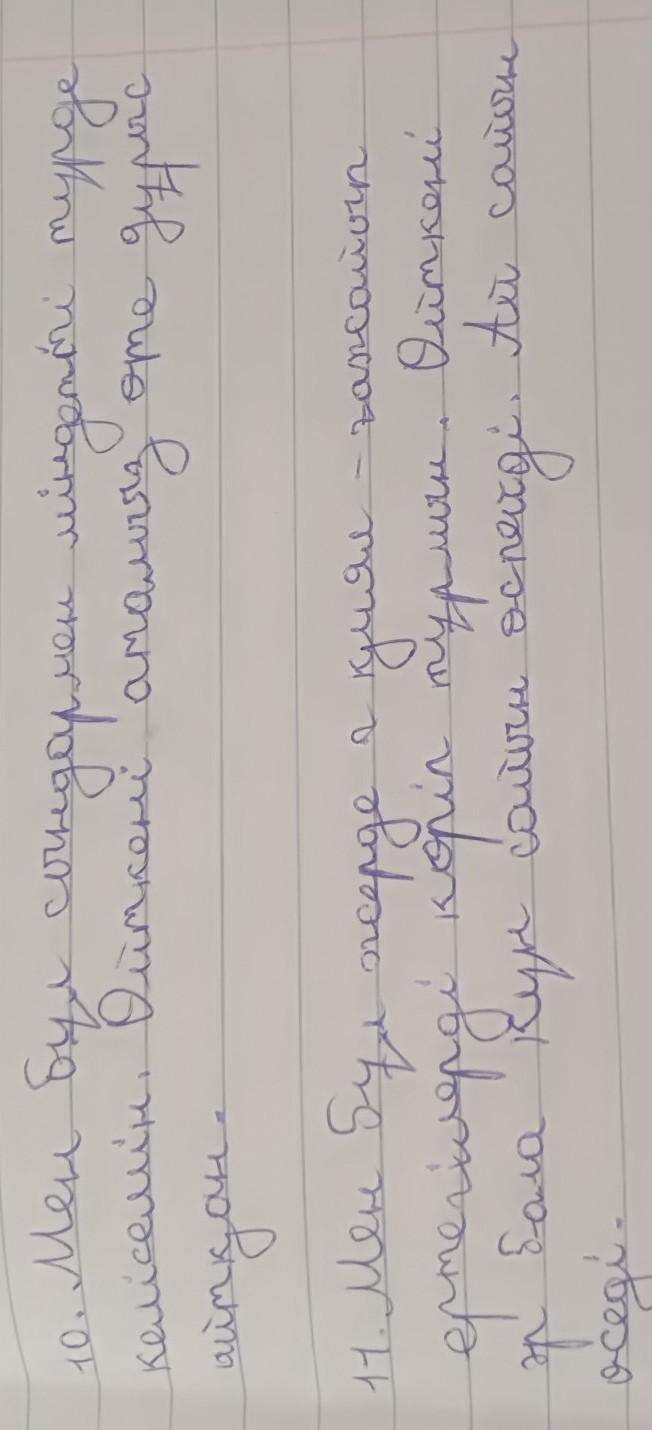 10. Мен бұл сындармен міндетті түрде
келісемін. Өйткені аталығз өте дұрыс
айтқан.
11. Мен бұл жерде қиял - ғажайып
ертегілерді көріп тұрмын. Өйткені
әр бала күн сайын өспейді. Ай сайын
өседі.